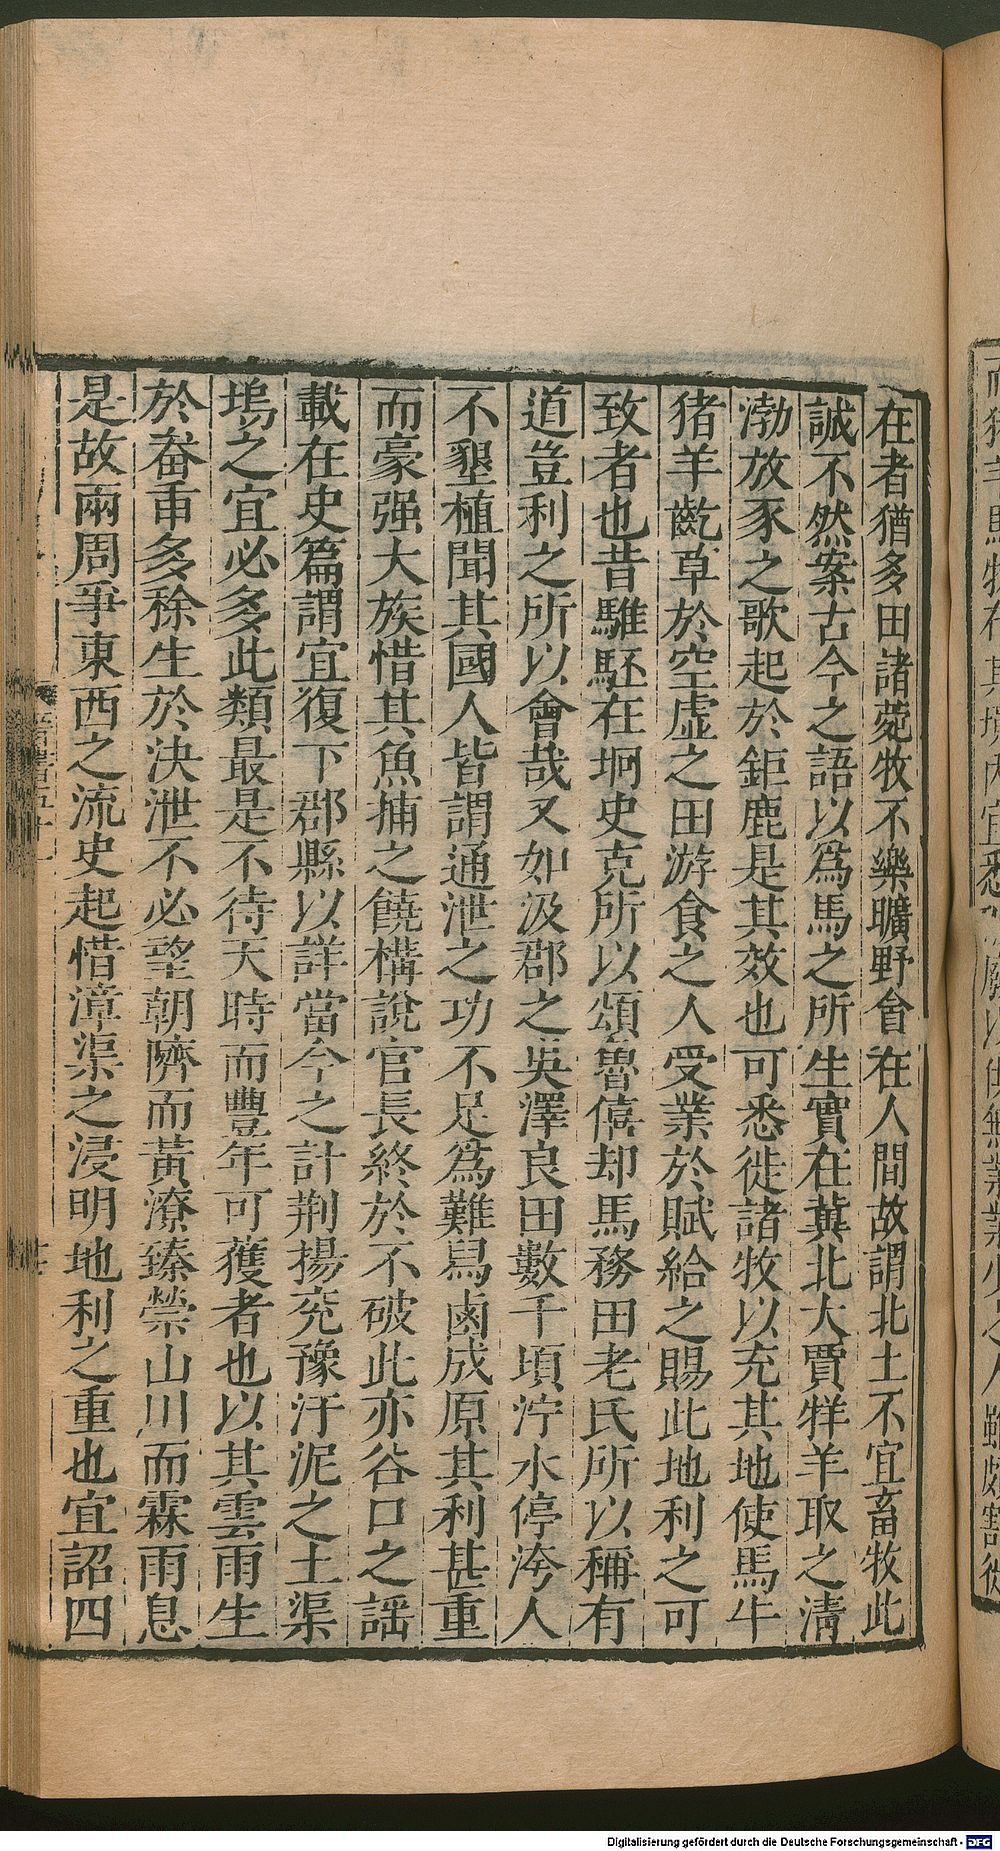 在者猶多田諸菀牧不樂曠野會在人間故謂北土不宜畜牧此
誠不然案古今之語以爲馬之所生實在冀北大賈牂羊取之清
渤放豕之歌起於鉅鹿是其效也可悉徙諸牧以充其地使馬牛
猪羊齕草於空虛之田游食之人受業於賦給之賜此地利之可
致者也昔騅駓在坰史克所以頌魯僖却馬務田老氏所以稱有
道豈利之所以會哉又如汲郡之吳澤良田數千頃泞水停洿人
不墾植聞其國人皆謂通泄之功不足爲難舄鹵成原其利甚重
而豪强大族惜其魚捕之饒構說官長終於不破此亦谷口之謡
載在史篇謂宜復下郡縣以詳當今之計荆揚兖豫汙泥之土渠
塢之宜必多此類最是不待天時而豐年可獲者也以其雲雨生
於畚臿多稌生於決泄不必望朝隮而黃潦臻禜山川而霖雨息
是故兩周爭東西之流史起惜漳渠之浸明地利之重也宜詔四
晉書五十一
Digitalisierung gefördert durch die Deutsche Forschungsgemeinschaft - DFG